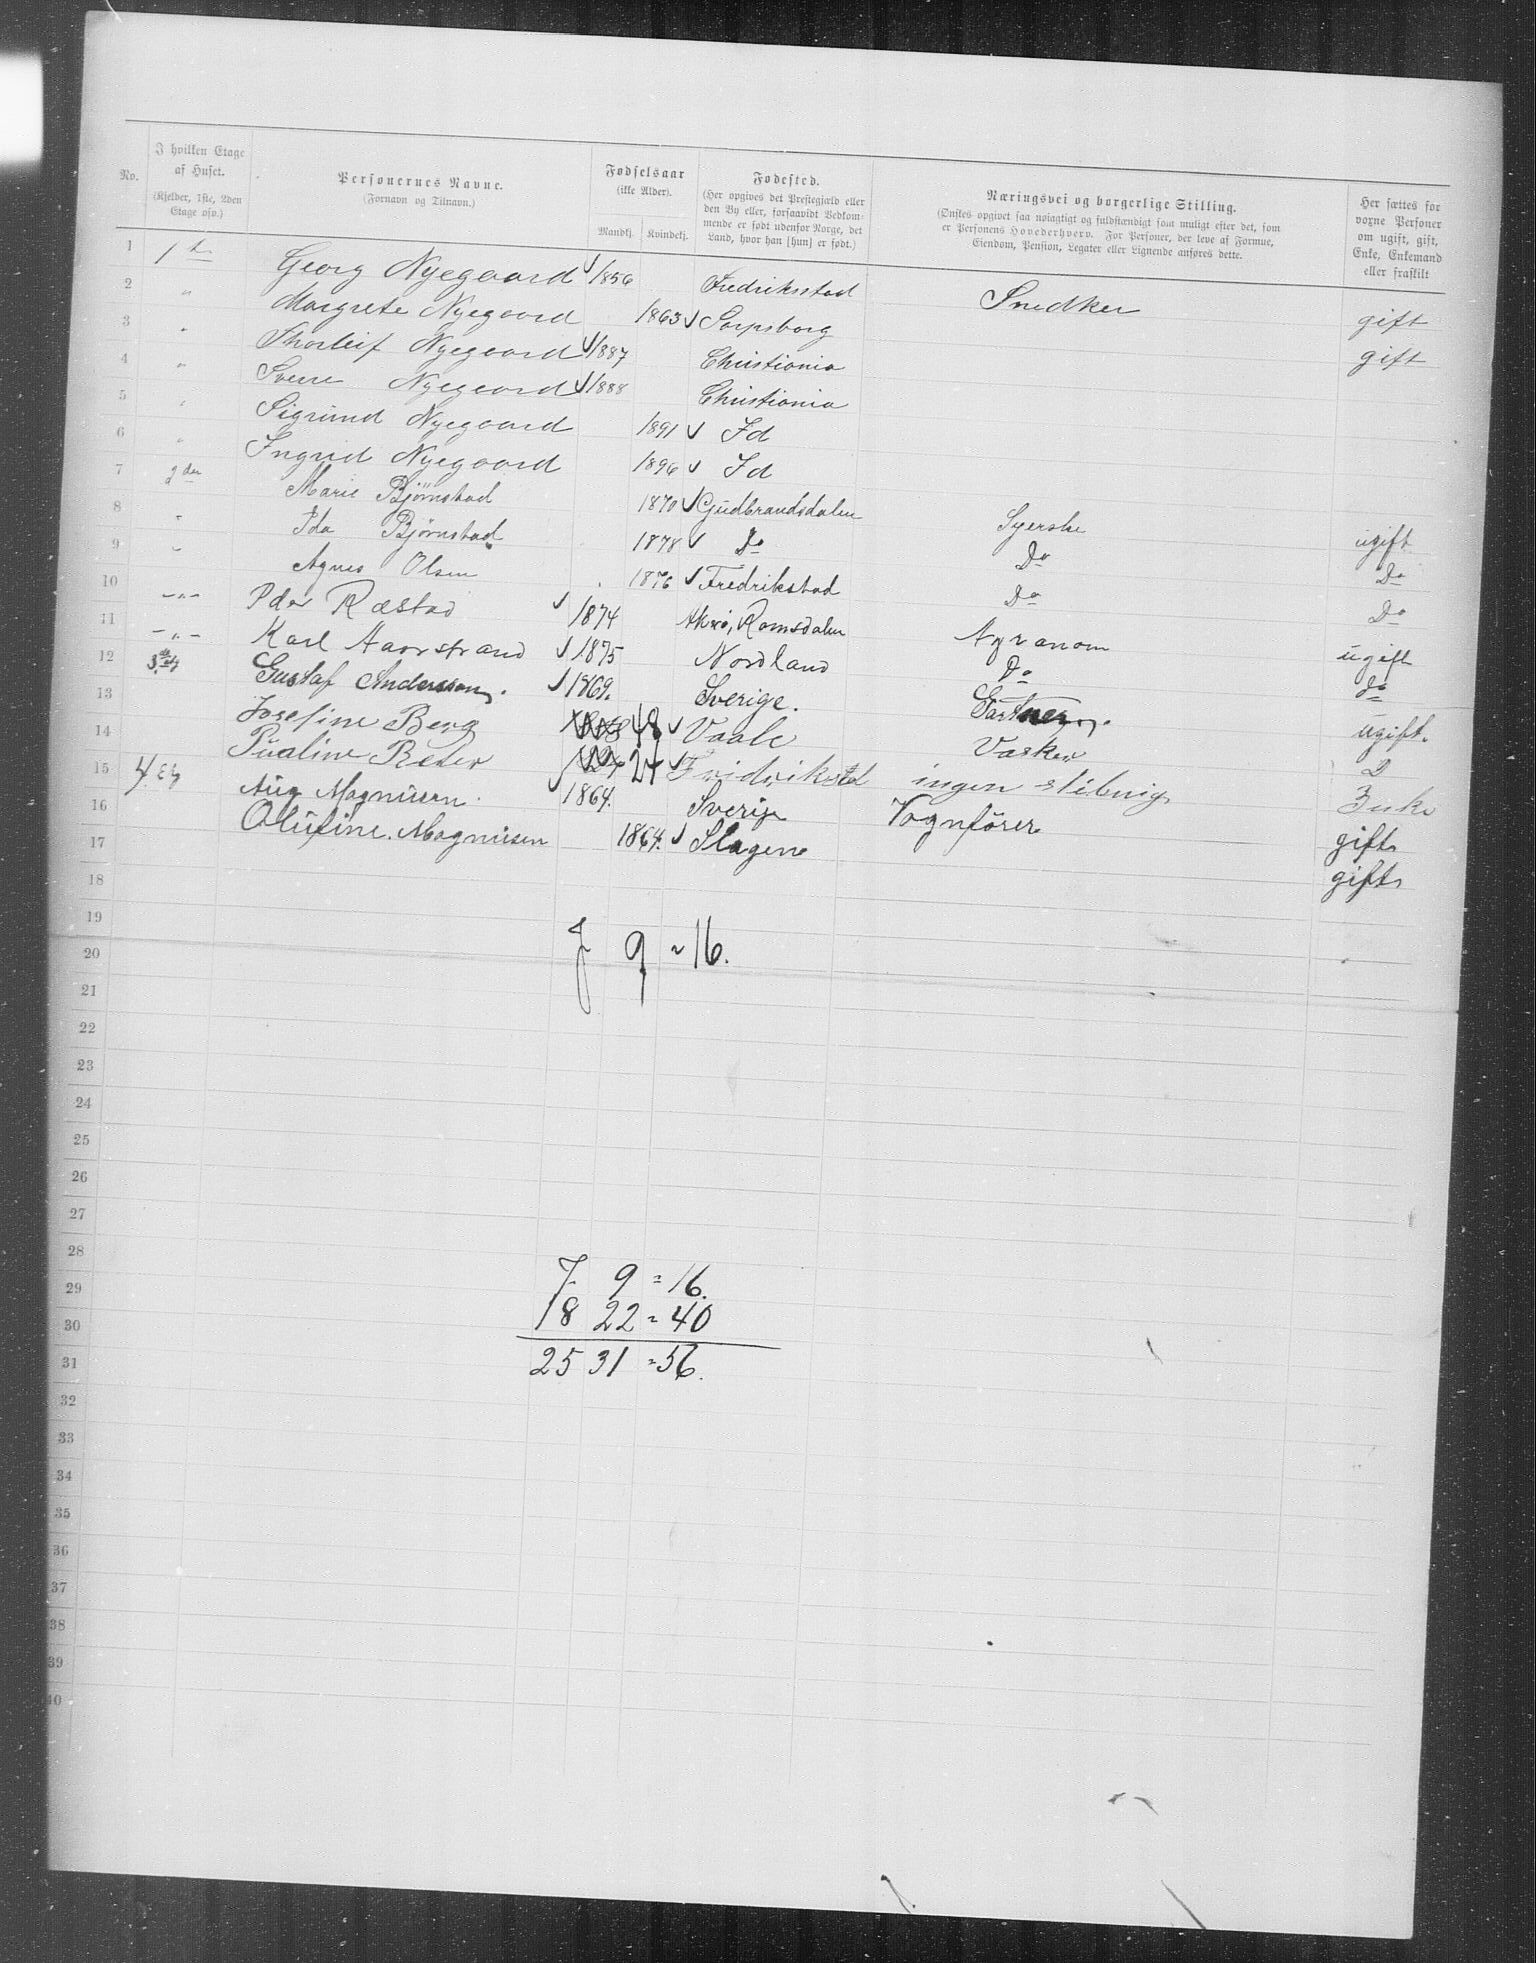 No. | I hvilken Etage af Huset. (Kjelder, 1ste, 2den Etage osv.) | Personernes Navne. (Fornavn og Tilnavn.) | Fødselsaar (ikke Alder). Mandkj. Kvindekj. | Fødested. (Her opgives det Præstegjæld eller den By eller, forsaavidt Vedkommende er født udenfor Norge, det Land, hvor han [hun] er født.) | Næringsvei og borgerlige Stilling. (Ønskes opgivet saa nøiagtigt og fuldstændigt som muligt efter det, som er Personens Hovederhverv. For Personer, der leve af Formue, Eiendom, Pension, Legater eller Lignende anføres dette. | Her sættes for voxne Personer om ugift, gift, Enke, Enkemand eller fraskilt
1 1 Georg Nyegaard √ 1856 Fredriksstad Snedker gift
2 " Margrete Nyegaard 1863 √ Sarpsborg gift
3 " Thorleif Nyegaard √ 1887 Christiania
4 " Sverre Nyegaard √ 1888 Christiania
5 " Sigrund Nyegaard 1891 √ Id
6 " Ingrid Nyegaard 1896 √ Id
7 2den Marie Bjørnstad 1870 √ Gudbrandsdalen Syerske ugift
8 " Ida Bjørnstad 1878 √ Do Do Do
9 " Agnes Olsen 1876 √ Fredrikstad Do Do
10 -"- Peder Ræstad √ 1874 Akerø, Romsdalen Agranom ugift
11 -"- Karl Aarstrand √ 1875 Nordland Do do
12 3. Gustaf Andersson. √ 1869. Sverige. Gartner. ugift.
13 Josefine Berg 48 √ Vaale Vasker D
14 Pualine Reder 24 √ Fridrikstd ingen stilnig Enke
15 4 Etg Aug Magnusen. √ 1864. Sverige Vognfører gift
16 Olufine. Magnusen 1864. √ Slagene gift
17
18
19
20
7 9 = 16.
21
22
23
24
25
26
27
28
29
7 9 = 16.
30
18 22 = 40
31
25 31 = 56.
32
33
34
35
36
37
38
39
40